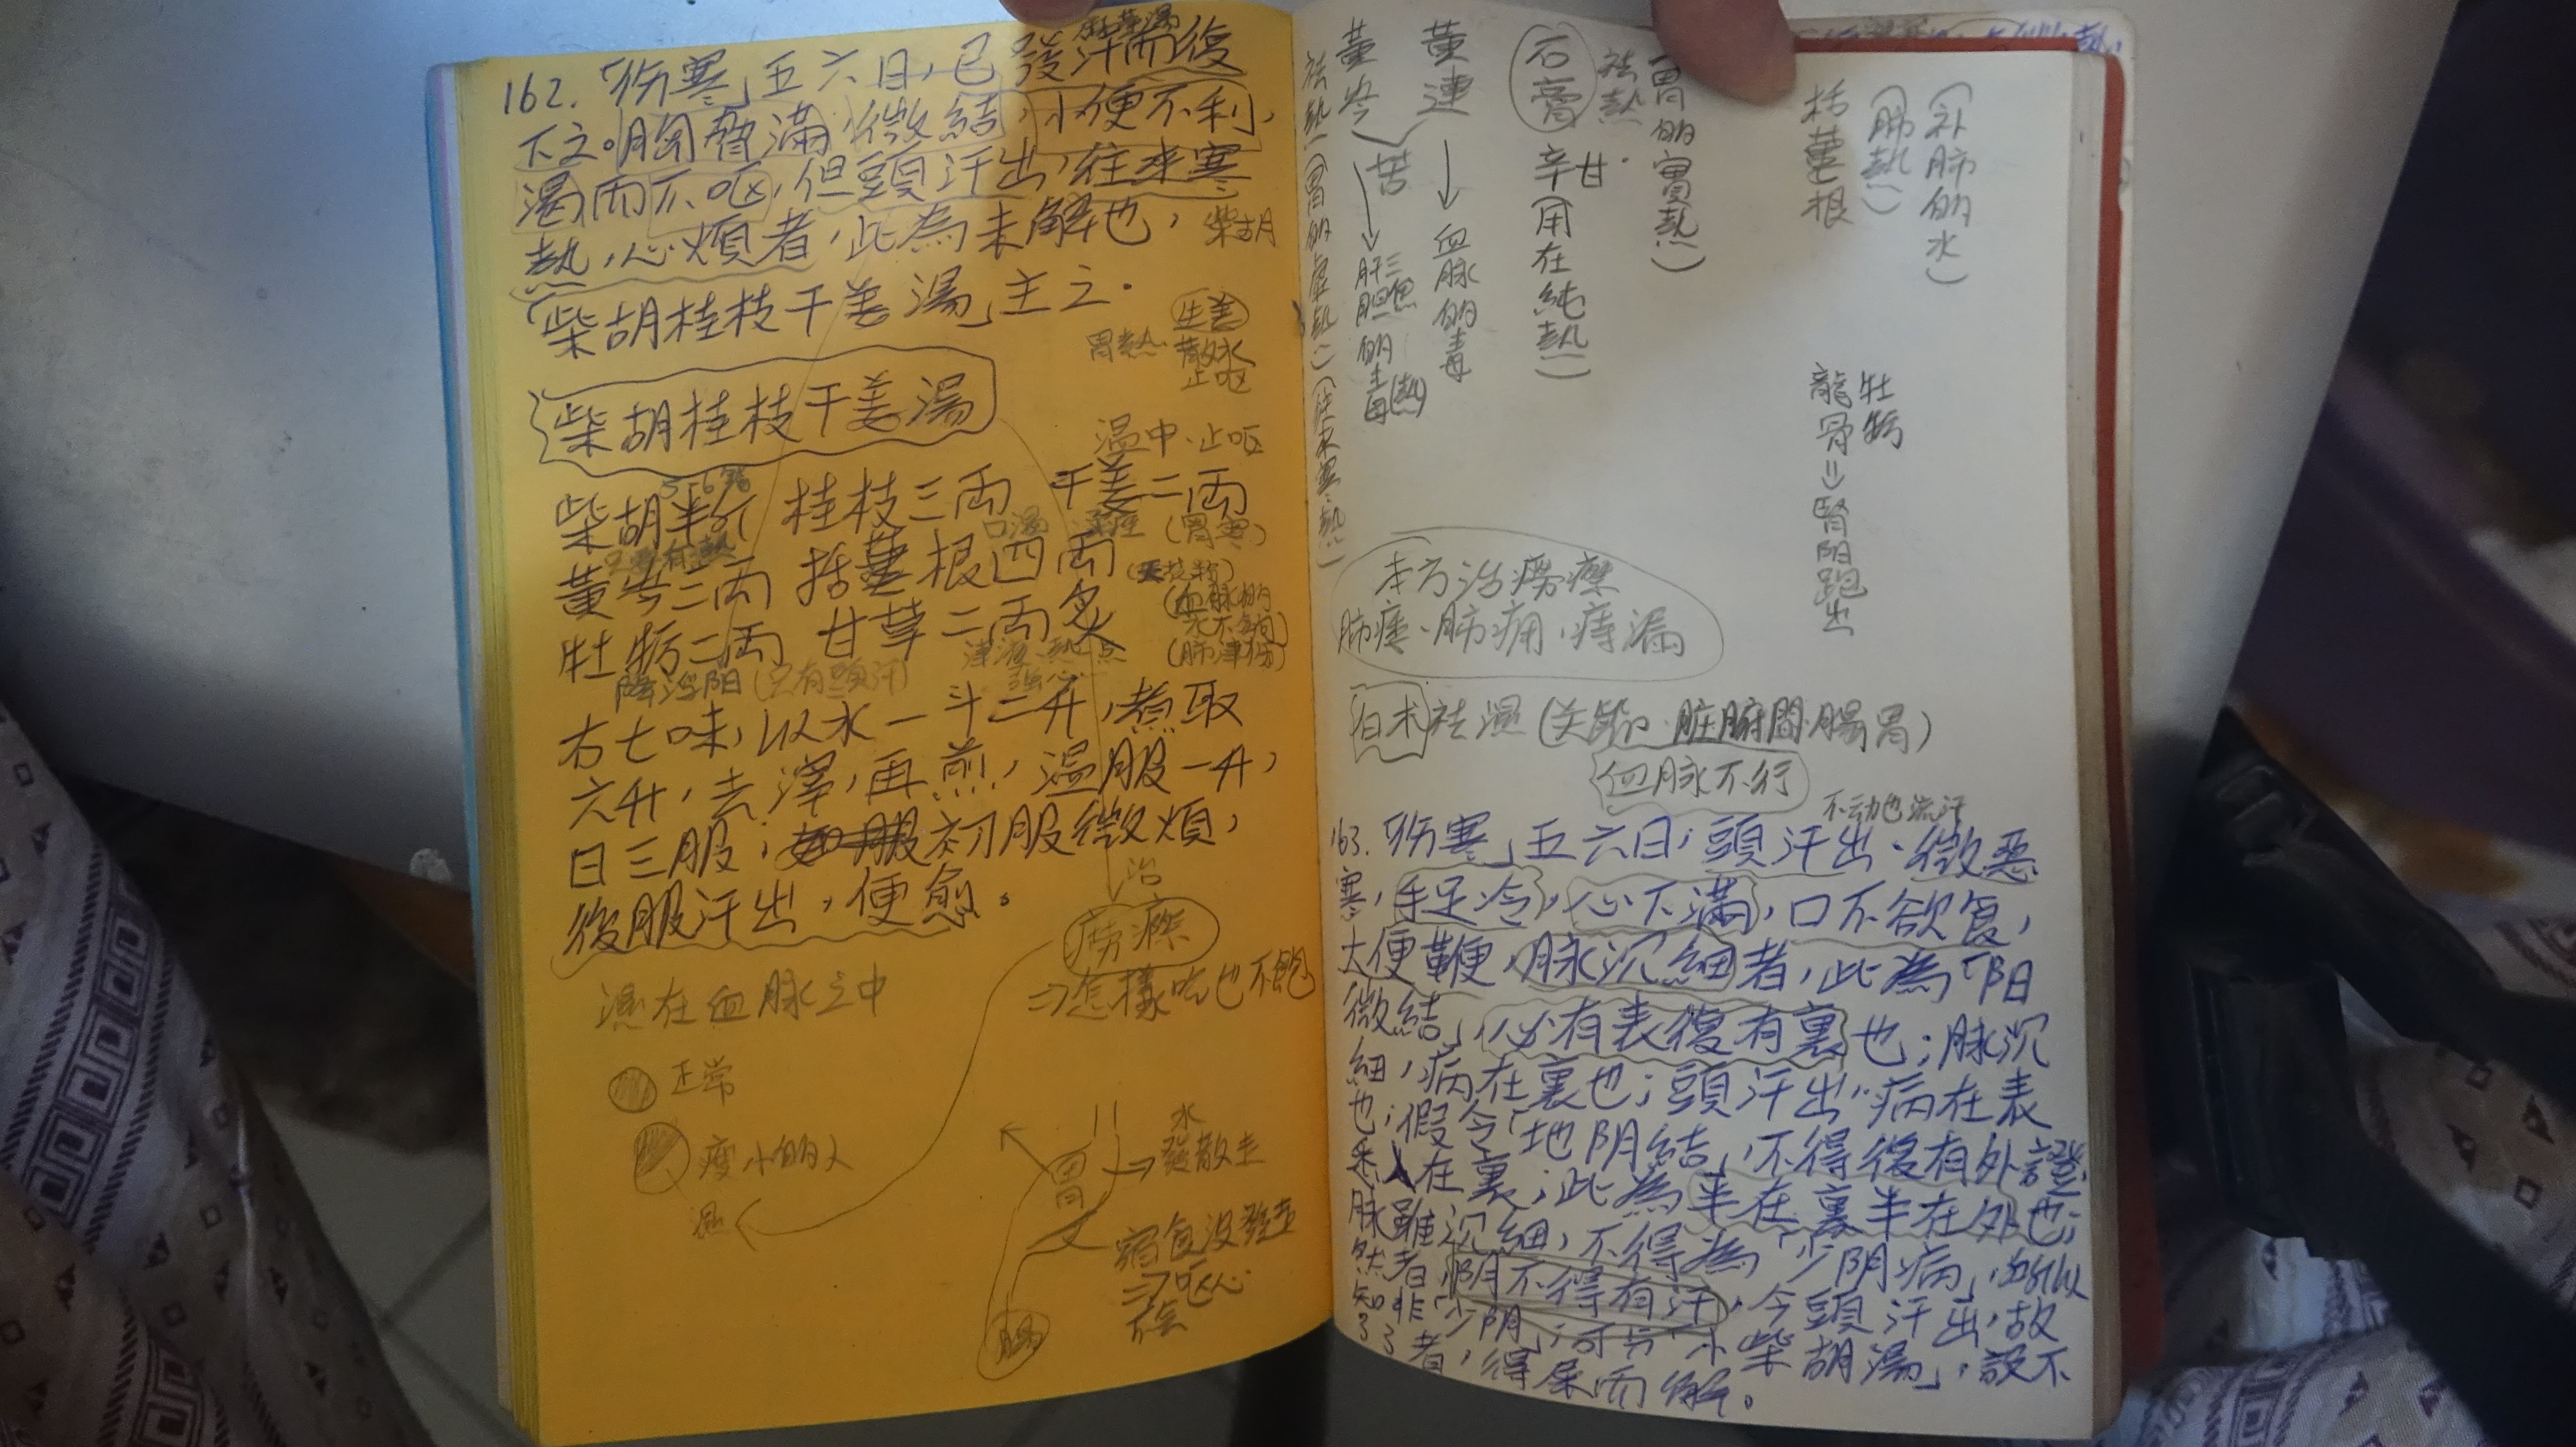 162.「伤寒」五六日,已發汗而復
下之。胸脅滿,微結,小便不利,
渴而不呕,但頭汗出,往来寒
熱,心煩者,此為未解也,
柴胡
「柴胡桂枝干姜湯」主之.
生姜
胃熱 散水
止呕
柴胡桂枝干姜湯
温中·止呕
5-6錢
柴胡半斤 桂枝三両 干姜二両
口渴
(胃寒)
黃芩三両 括蔞根四両
(天花粉)
牡蛎二両 甘草二両炙
(肺津傷)
降浮阳(只有頭汗)
強心
右七味,以水一斗二升,煮取
六升,去滓,再煎,温服一升,
日三服;初服微煩,
後服汗出,便愈。
治
痨瘵
⇒怎樣吃也不飽
濕在血脉之中
正常
瘦小的人
濕
水
發散走
胃
宿食没發走
⇒呕心
腸
黃芩
祛熱(胃的虛熱)(往来寒熱)
黃連
苦
→血脉的毒
→肝胆三焦的毒(熱)
石膏
祛熱
(胃的實熱)
辛甘(用在純熱)
括蔞根
(肺熱)
(补肺的水)
牡蛎
龍骨⇒腎阳跑出
本方治痨瘵
肺痿·肺痈·痔漏
白术祛濕(关節·脏腑間·腸胃)
血脉不行
不动也流汗
163.「伤寒」五六日,頭汗出·微恶
寒,手足冷,心下滿,口不欲食,
大便鞕,脉沉細者,此為「阳
微結」,必有表復有裏也;脉沉
細,病在裏也;頭汗出,病在表
也;假令「地阴結」,不得復有外證,
悉入在裏;此為半在裏半在外也;
脉雖沉細,不得為「少阴病」,所以
然者,阴不得有汗,今頭汗出,故
知非「少阴」;可与「小柴胡湯」,設不
了了者,得屎而解。